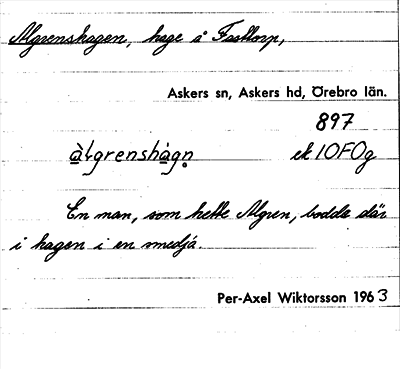 Algrenshagen, hage å Fasttorp,
Askers sn, Askers hd, Örebro län.
897
àlgrenshàgn ek 10F0g
En man, som hette Algren, bodde där
i hagen i en smedja.
Per-Axel Wiktorsson 1963